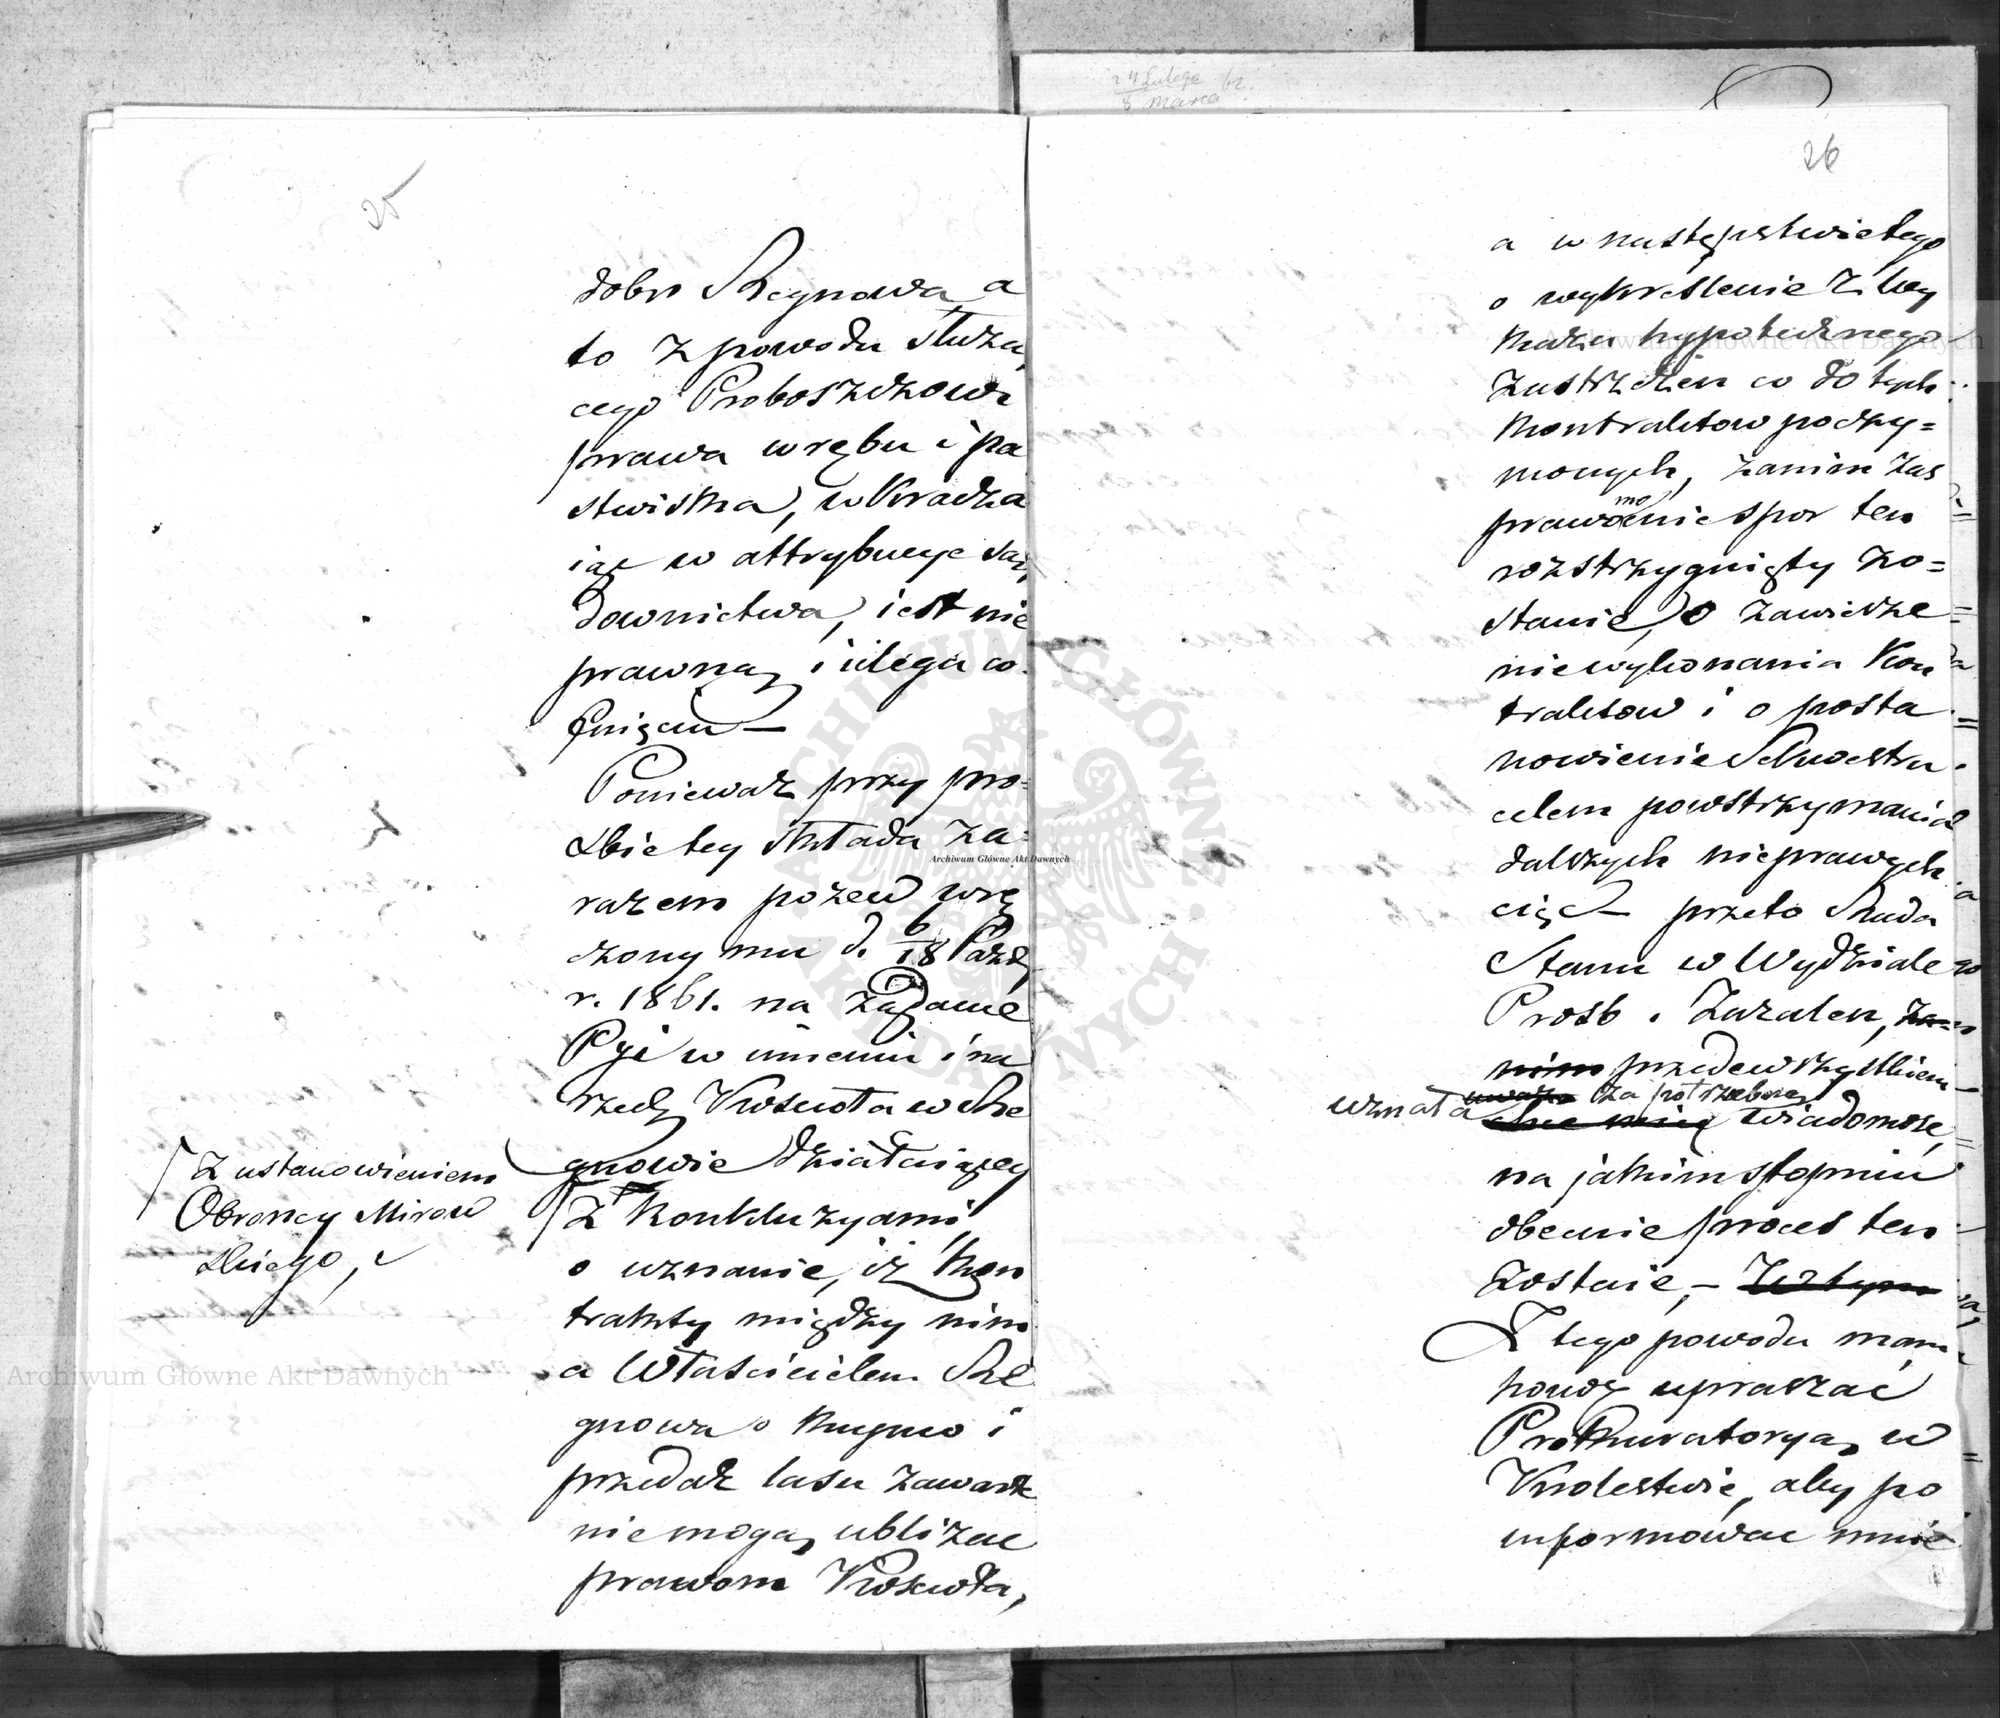 24 Lutego
8 Marca
25
dobr Skrzynowa a
to z powodu służą
cego Proboszczowi
prawa wrębu i pa
stwiska, wkracza
iąc w attrybucye są
downictwa, iest nie
prawną, i ulega co
fnięciu —
Ponieważ przy pro=
źbie tey składa za=
razem pozew wrę
czony mu d. 6/18 Paźdz
r. 1861. na żądanie
Pgi w imieniu i na
rzecz Kościoła w Skrze
gnowie działaiącey
z ustanowieniem
Obroncy Mirow
skiego,
z konkluzyami
o uznanie, iż kon
trakty między nim
a Właścicielem Skrze
gnowa o kupno i
przedaż lasu zawarte
nie mogą ubliżać
prawom Kościoła,
26
a w następstwie tego
o wykreślenie z wy
kazu hypotecznego
zastrzeżeń co do tych
kontraktow poczy=
nionych, zanim zas
prawomocnie spor ten
rozstrzygnięty zo=
stanie, o zawiesze=
nie wykonania kon
traktow i o posta
nowienie Sekwestru
celem powstrzymania
dalszych nieprawych
cięć — przeto Rada
Stanu w Wydziale
Prosb i Zażaleń, za=
nim przedewszystkiem
uznała uważa za potrzebną
wiadomość,
na jakim stopniu
obecnie proces ten
zostaie, — W tym
Z tego powodu mam
honor upraszać
Prokuratoryą w
Krolestwie, aby po
informować mnie
Archiwum Główne Akt Dawnych
Archiwum Główne Akt Dawnych
Archiwum Główne Akt Dawnych
ARCHIWUM GŁÓWNE AKT DAWNYCH